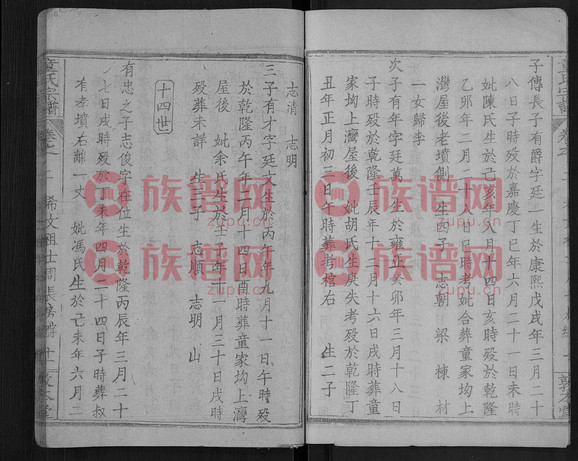 子傳長子有爵字廷一生於康熙戊戌年三月二十
八日子時歿於嘉慶丁巳年六月二十一日未時
妣陳氏生於己亥年八月十四亥時歿於乾隆
乙卯年二月十八日巳時考妣合葬童家坳上
灣屋後老墳側 生四子 志朝 梁 棟 材
一女歸李
次子有年字廷萬生於雍正癸卯年三月十八日
時歿於乾隆壬辰年十二月十六日戌時葬童
家坳上灣屋後 妣胡氏生庚失考歿於乾隆丁
丑年正月初三日午時葬考棺右 生二子
志清 志明
三子有才字廷文生於丙午年九月十一日午時歿
於乾隆丙午年二月十四日酉時葬童家坳上灣
屋後 妣余氏生於壬子年 月三十日戌時
歿葬未詳 生二子 志順 志明 山
十四世
有忠之子志俊字在位生於乾隆丙辰年三月二十
七日戌時歿於丁未年四月二十四日子時葬叔
有孝墳右離一丈 妣馮氏生於己未年六月二
童氏宗譜
敦本堂
族谱网
zupu.cn
族谱网
zupu.cn
族谱网
zupu.cn